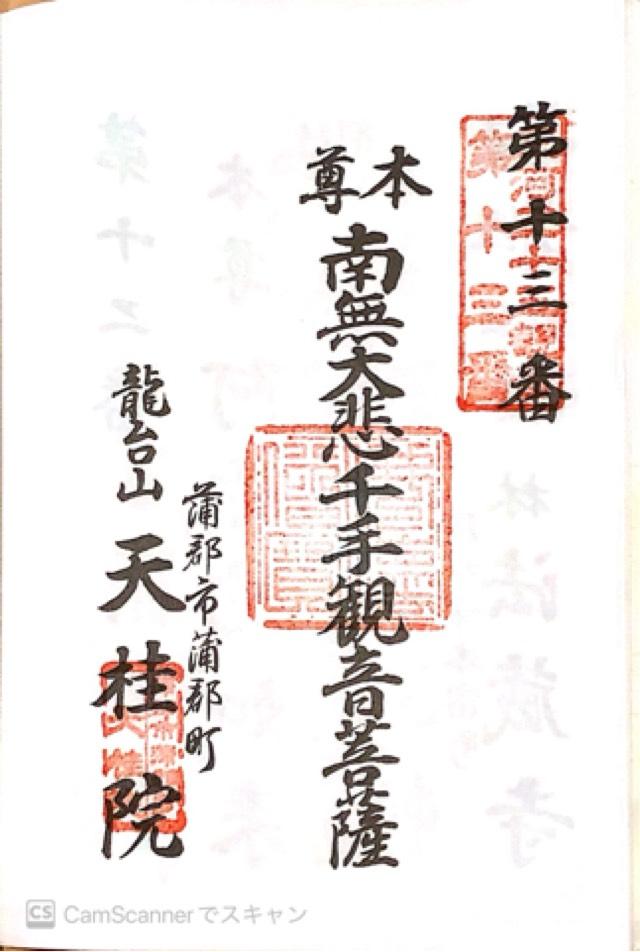 第十三番
本尊
南無大悲千手観音菩薩
蒲郡市蒲郡町
龍台山 天桂院
第十三番
CS CamScannerでスキャン